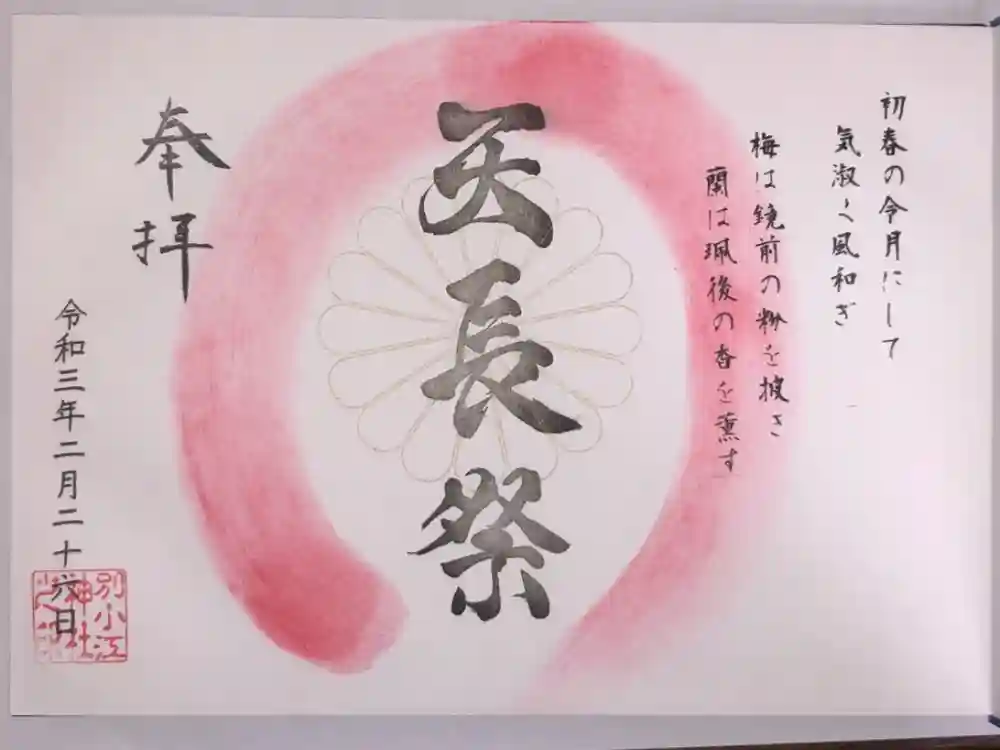 初春の令月にして
気淑く風和ぎ
梅は鏡前の粉を披き
蘭は珮後の香を薫す
天長祭
奉拝
令和三年二月二十六日
別小江
神社